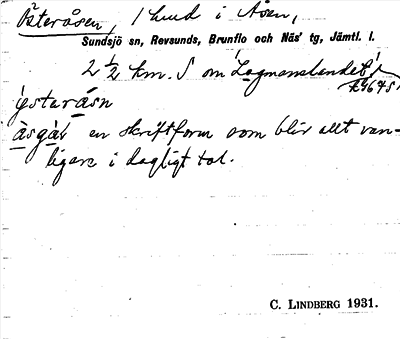 Österåsen, 1 hmd i Åsen,
Sundsjö sn, Revsunds, Brunflo och Näs' tg, Jämtl. l.
2 ½ km. S om Lagmanslandet
ýsteråsn
àsgàv en skriftform som blir allt van-
ligare i dagligt tal.
C. LINDBERG 1931.